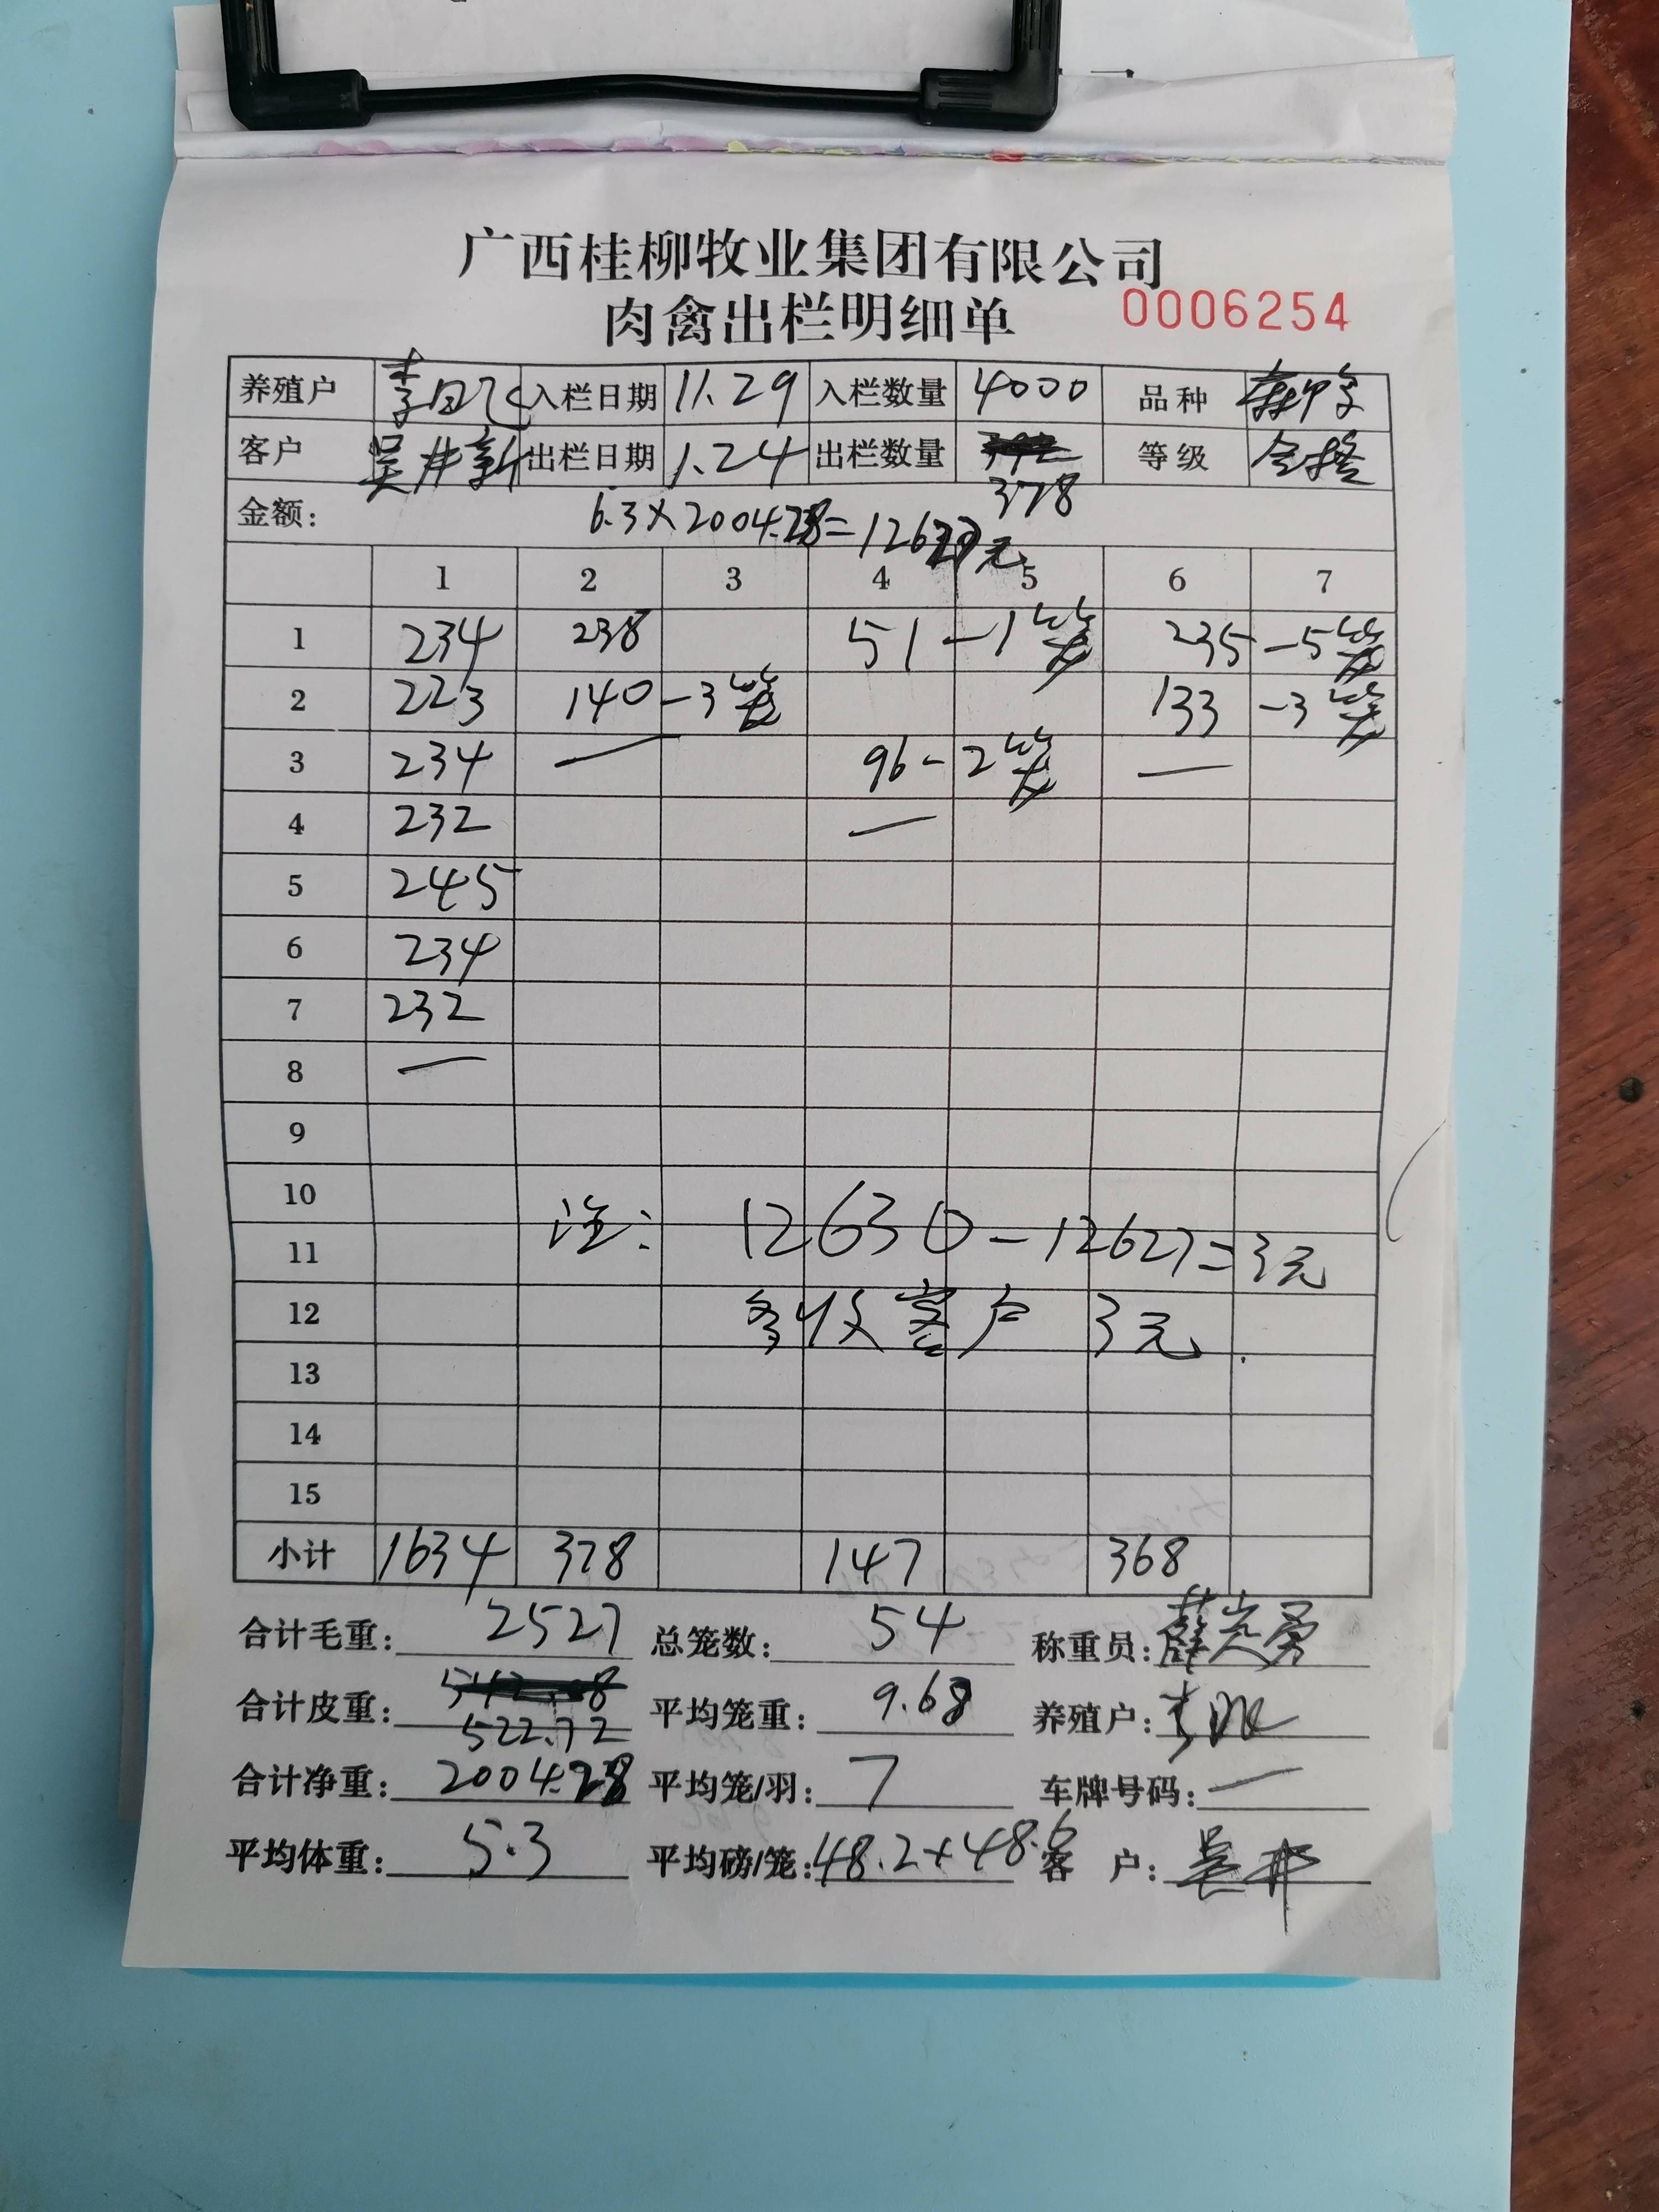 广西桂柳牧业集团有限公司
肉禽出栏明细单 0006254
养殖户 入栏日期 11.29 入栏数量 4000 品种
客户 吴井新 出栏日期 1.24 出栏数量 378 等级 合格
金额: 6.3×2004.28=12627元
1 2 3 4 5 6 7
1 234 238 51-1笼 235-5笼
2 223 140-3笼 133-3笼
3 234 — 96-2笼 —
4 232 —
5 245
6 234
7 232
8 —
9
10
11 注: 12630-12627=3元
12 多收客户 3元.
13
14
15
小计 1634 378 147 368
合计毛重: 2527 总笼数: 54 称重员:
合计皮重: 522.72 平均笼重: 9.68 养殖户:
合计净重: 2004.28 平均笼/羽: 7 车牌号码: —
平均体重: 5.3 平均磅/笼: 48.2+48.6 客 户: 吴井